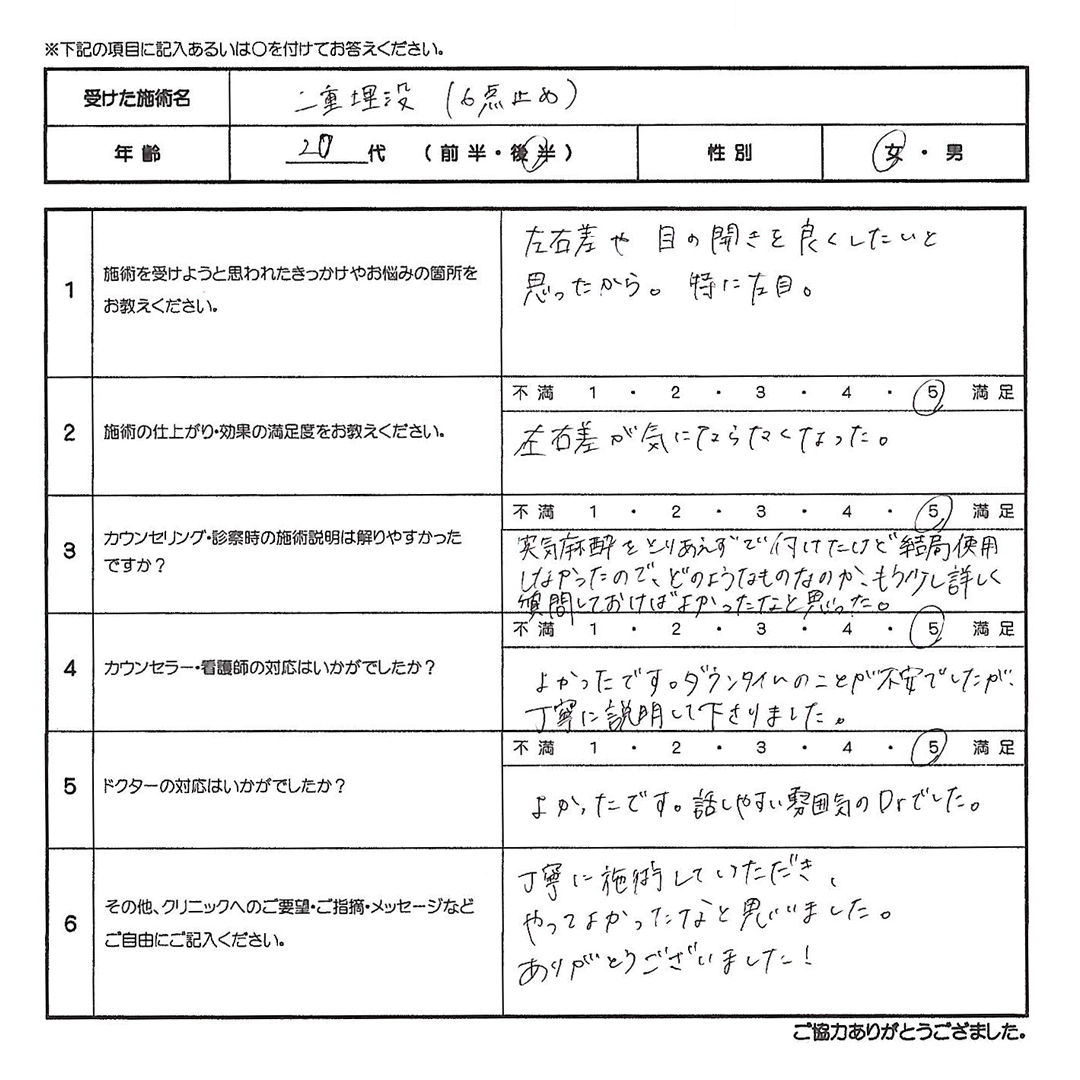 ※下記の項目に記入あるいは〇を付けてお答えください。
受けた施術名 二重埋没 (6点止め)
年齢 20代 (前半・後半) 性別 女・男
1 施術を受けようと思われたきっかけやお悩みの箇所を
お教えください。
左右差や 目の開きを良くしたいと
思ったから。 特に左目。
不満 1 ・ 2 ・ 3 ・ 4 ・ 5 満足
2 施術の仕上がり・効果の満足度をお教えください。
左右差が気にならなくなった。
不満 1 ・ 2 ・ 3 ・ 4 ・ 5 満足
3 カウンセリング・診察時の施術説明は解りやすかった
ですか？
笑気麻酔をとりあえずで付けたけど結局使用
しなかったので、どのようなものなのか、もう少し詳しく
質問しておけばよかったなと思った。
不満 1 ・ 2 ・ 3 ・ 4 ・ 5 満足
4 カウンセラー・看護師の対応はいかがでしたか？
よかったです。ダウンタイムのことが不安でしたが、
丁寧に説明して下さりました。
不満 1 ・ 2 ・ 3 ・ 4 ・ 5 満足
5 ドクターの対応はいかがでしたか？
よかったです。話しやすい雰囲気のDrでした。
6 その他、クリニックへのご要望・ご指摘・メッセージなど
ご自由にご記入ください。
丁寧に施術していただき、
やってよかったなと思いました。
ありがとうございました！
ご協力ありがとうござました。